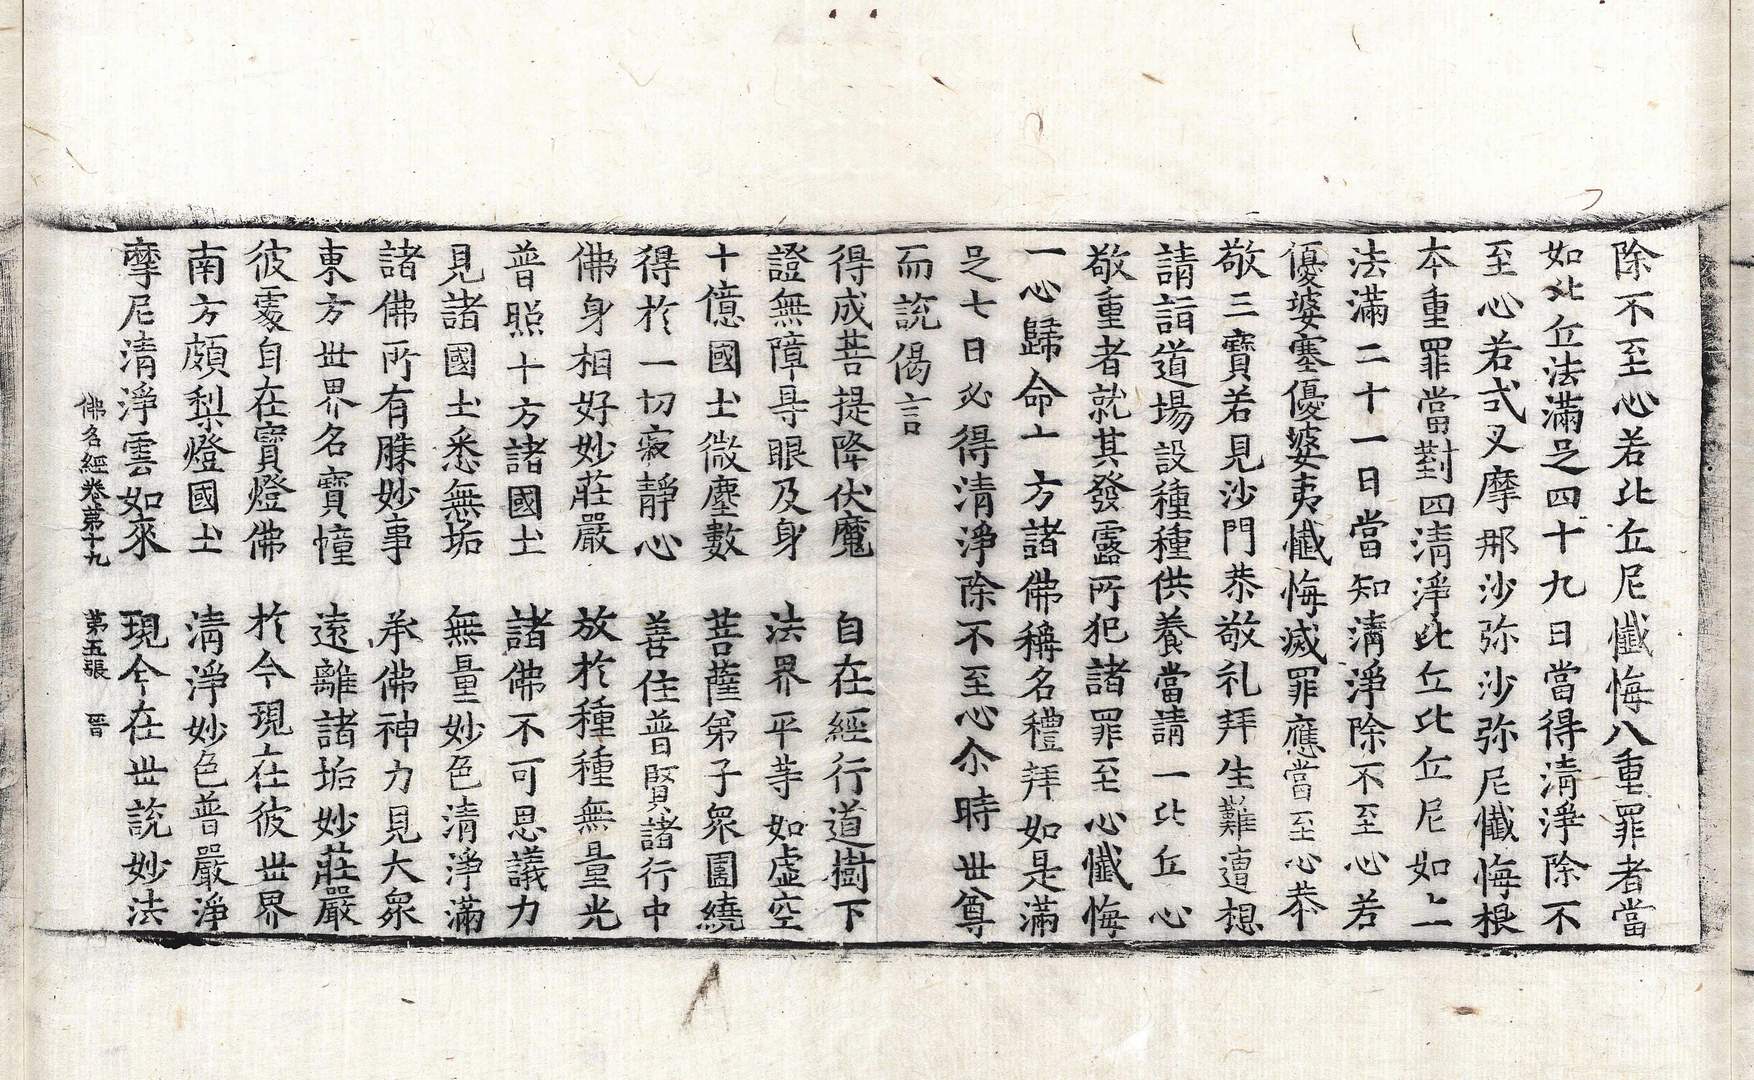 除不至心若比丘尼懺悔八重罪者當
如比丘法滿足四十九日當得清淨除不
至心若式叉摩那沙弥沙弥尼懺悔根
本重罪當對四清淨比丘比丘尼如上
法滿二十一日當知清淨除不至心若
優婆塞優婆夷懺悔滅罪應當至心恭
敬三寶若見沙門恭敬礼拜生難遭想
請詣道場設種種供養當請一比丘心
敬重者就其發露所犯諸罪至心懺悔
一心歸命十方諸佛稱名禮拜如是滿
足七日必得清淨除不至心尒時世尊
而說偈言
得成菩提降伏魔　自在經行道樹下
證無障㝵眼及身　法界平等如虛空
十億國土微塵數　菩薩弟子衆圍繞
得於一切寂靜心　善住普賢諸行中
佛身相好妙莊嚴　放於種種無量光
普照十方諸國土　諸佛不可思議力
見諸國土悉無垢　無量妙色清淨滿
諸佛所有勝妙事　承佛神力見大衆
東方世界名寶幢　遠離諸垢妙莊嚴
彼處自在寶燈佛　於今現在彼世界
南方頗梨燈國土　清淨妙色普嚴淨
摩尼清淨雲如來　現今在世說妙法
佛名經卷第十九　第五張　晉